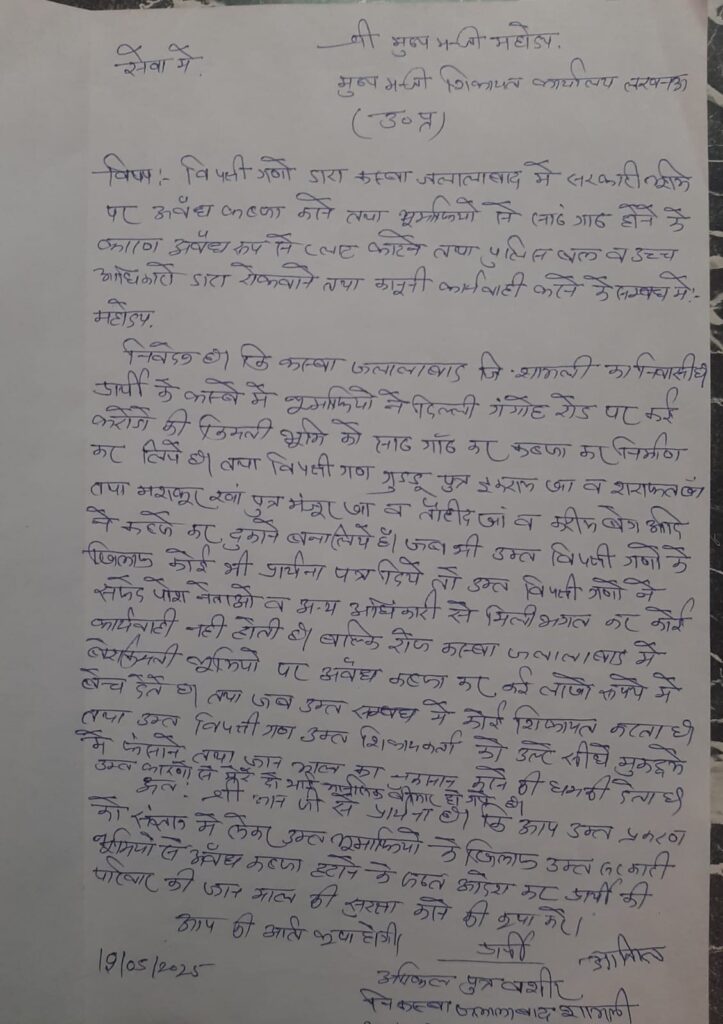 श्री मुख्य मन्त्री महोदय.
सेवा में.
मुख्य मन्त्री शिकायत कार्यालय लखनऊ
(उ०प्र)
विषय:- विपक्षी गणों द्वारा कस्बा जलालाबाद में सरकारी भूमि
पर अवैध कब्जा करने तथा भूमाफियो से सांठ गांठ होने के
कारण अवैध रूप से प्लाट काटने तथा पुलिस बल व उच्च
अधिकारी द्वारा रोकवाने तथा कानूनी कार्यवाही करने के सम्बन्ध में:-
महोदय.
निवेदन है। कि कस्बा जलालाबाद जि. शामली का निवासी है।
प्रार्थी के कस्बे में भूमाफियो ने दिल्ली गंगोह रोड पर कई
करोडो की किमती भूमि को साठ गाँठ कर कब्जा कर निर्माण
कर लिये है। तथा विपक्षी गण गुड्डू पुत्र व शराफत खाँ
तथा मशकूर खां पुत्र मंजूर खां व तौहीद खां व बेग आदि
ने कब्जे कर दुकाने बना लिये हैं। जब भी उक्त विपक्षी गणों के
खिलाफ कोई भी प्रार्थना पत्र दिये तो उक्त विपक्षी गणों ने
सफेद पोश नेताओ व अन्य अधिकारी से मिली भगत कर कोई
कार्यवाही नही होती है। बल्कि रोज कस्बा जलालाबाद में
बेशकिमती भूमियो पर अवैध कब्जा कर कई लाखो रूपये में
बेच देते है। तथा जब उक्त सम्बन्ध में कोई शिकायत करता है।
तथा उक्त विपक्षी गण उक्त शिकायतकर्ता को उल्टे सीधे मुकदमे
में फंसाने तथा जान माल का नुकसान करने की धमकी देता है।
उक्त कारणो से मेरे दो भाई हो गये है।
अतः श्री मान जी से प्रार्थना है। कि आप उक्त प्रकरण
को संज्ञान में लेकर उक्त भूमाफियो के खिलाफ उक्त सरकारी
भूमियो से अवैध कब्जा हटाने के आदेश कर प्रार्थी की
परिवार की जान माल की सुरक्षा करने की कृपा करे।
आप की अति कृपा होगी।
19/05/2025
प्रार्थी
पुत्र बशीर
नि कस्बा जलालाबाद शामली